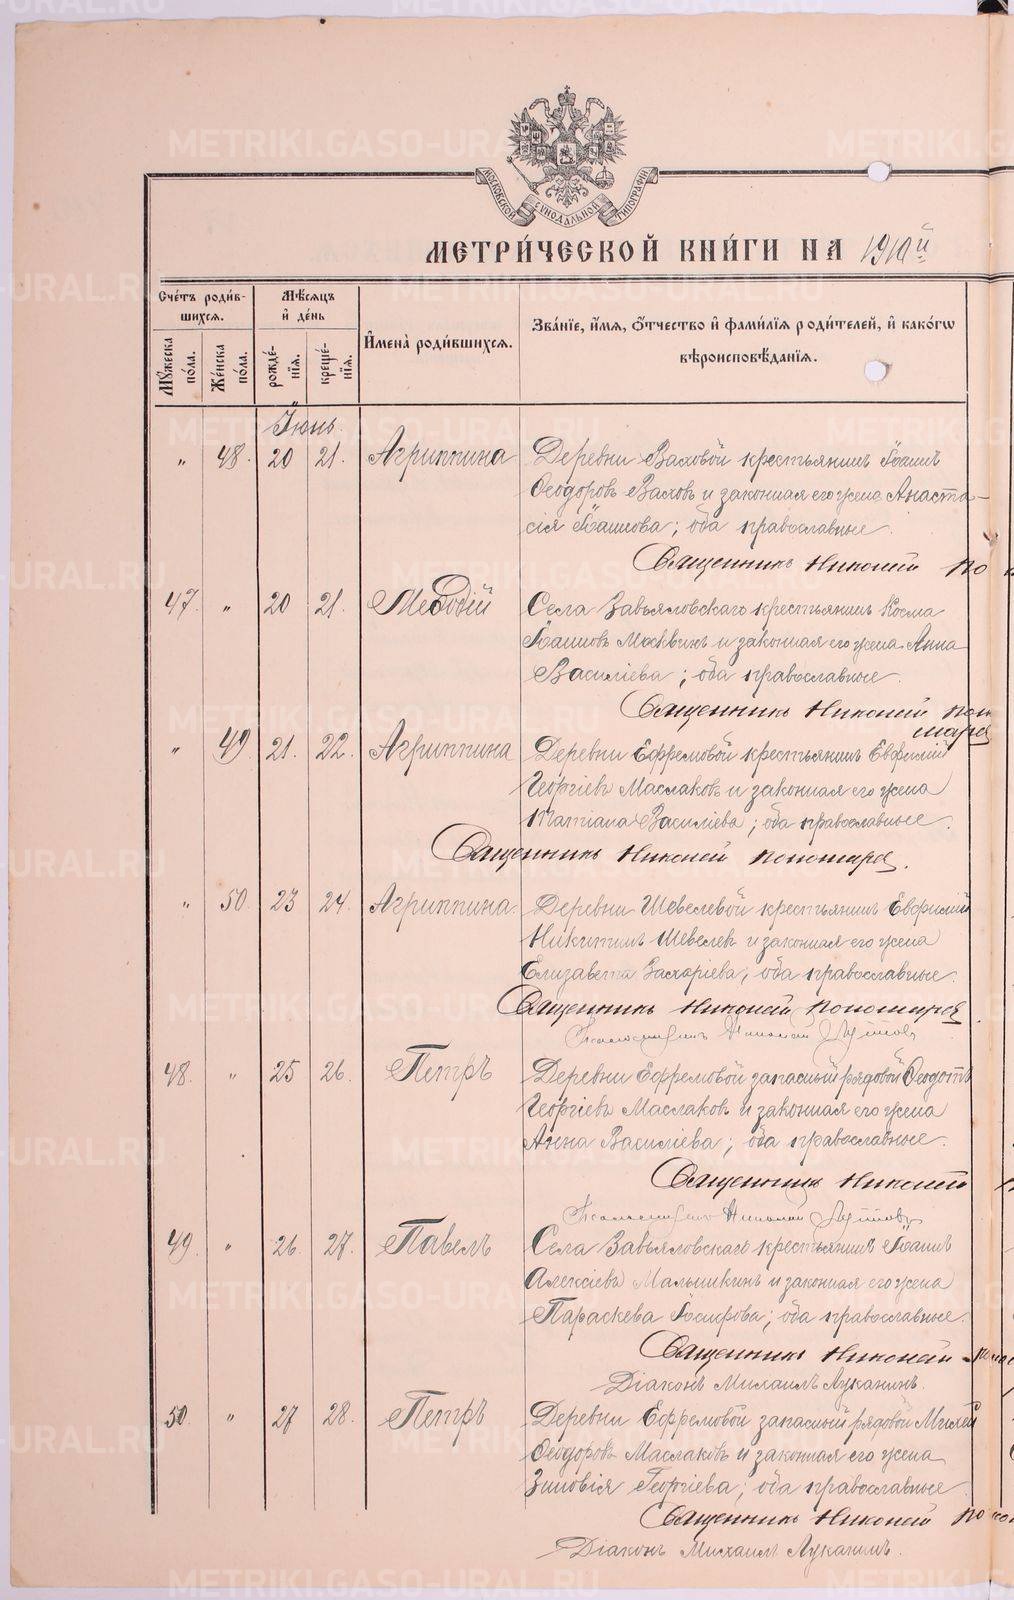 МОСКОВСКОЙ СУНОДАЛЬНОЙ ТИПОГРАФИИ
МЕТРИ́ЧЕСКОЙ КНИ́ГИ НА 1910й
Счётъ роди́в-
шихся.
Мѣ́сяцъ
и҆ де́нь
И҆мена̀ роди́вшихся.
Зва́нїе, и҆́мя, ѻ҆́тчество и҆ фами́лїя роди́телей, и҆ како́гѡ
вѣроисповѣ́данїя.
Мꙋ́жеска по́ла.
Же́нска по́ла.
рожде́-нїя.
креще́-нїя.
Іюнь
" 48. 20 21. Агриппина Деревни Ваховой крестьянинъ Іоаннъ
Ѳеодоровъ Ваховъ и законная его жена Анаста-
сія Іоаннова; оба православные.
Священникъ Николай По
47. " 20 21. Меѳодій Села Завьяловскаго крестьянинъ Косма
Іоанновъ Москвинъ и законная его жена Анна
Василіева; оба православные.
Священникъ Николай Поно
марев
" 49 21. 22. Агриппина Деревни Ефремовой крестьянинъ Евфимій
Георгіевъ Маслаковъ и законная его жена
Татіана Василіева; оба православные.
Священникъ Николай Пономарев.
" 50. 23 24. Агриппина. Деревни Шевелевой крестьянинъ Евфимій
Никитинъ Шевелевъ и законная его жена
Елизавета Захаріева; оба православные.
Священникъ Николай Пономарев.
Псаломщикъ Николай
48. " 25 26. Петръ Деревни Ефремовой запасный рядовой Ѳеодотъ
Георгіевъ Маслаковъ и законная его жена
Анна Василіева; оба православные.
Священникъ Николай
Псаломщикъ Николай
49. " 26. 27. Павелъ Села Завьяловскаго крестьянинъ Іоаннъ
Алексіевъ Малышкинъ и законная его жена
Параскева Іосифова; оба православные.
Священникъ Николай Поно
Діаконъ Михаилъ Луканинъ.
50. " 27 28. Петръ Деревни Ефремовой запасный рядовой
Ѳеодоровъ Маслаковъ и законная его жена
Зиновія Георгіева; оба православные
Священникъ Николай Поно
Діаконъ Михаилъ Луканинъ.
METRIKI.GASO-URAL.RU